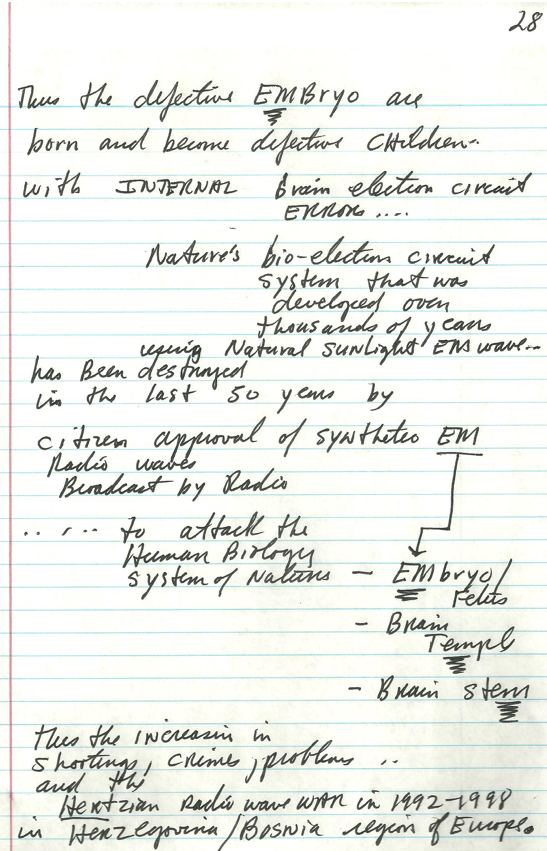 28
Thus the defective EMBryo are
born and become defective CHildren..
with INTERNAL brain election circuit
ERRORS....
Nature's bio-election circuit
system that was
developed over
thousands of years
using Natural sunlight EM wave...
has Been destroyed
in the last 50 years by
citizen approval of synthetec EM
Radio waves
Broadcast by Radio
.. .. .. to attack the
Human Biology
system of Nature - EMbryo/
Fetus
- Brain
Templ
- Brain stem
thus the increasin in
shootings, crimes, problems ..
and the
Hertzian Radio wave WAR in 1992-1998
in Herzegovina/Bosnia region of Europe.